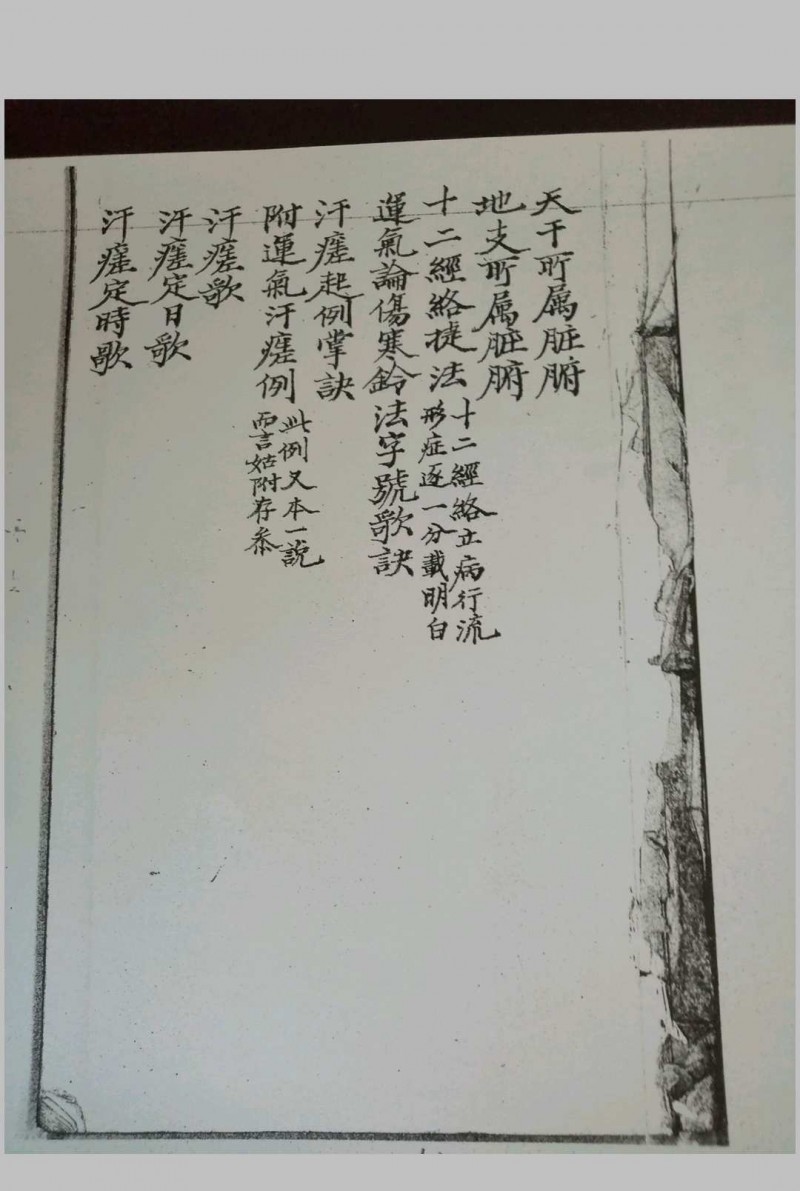 天干所属脏腑
地支所属脏腑
十二經絡捷法
十二經絡立病行流
形症逐一分載明白
運氣論傷寒鈐法字號歌訣
汗瘥起例掌訣
附運氣汗瘥例
此例又本一說
而言姑附存叅
汗瘥歌
汗瘥定日歌
汗瘥定時歌